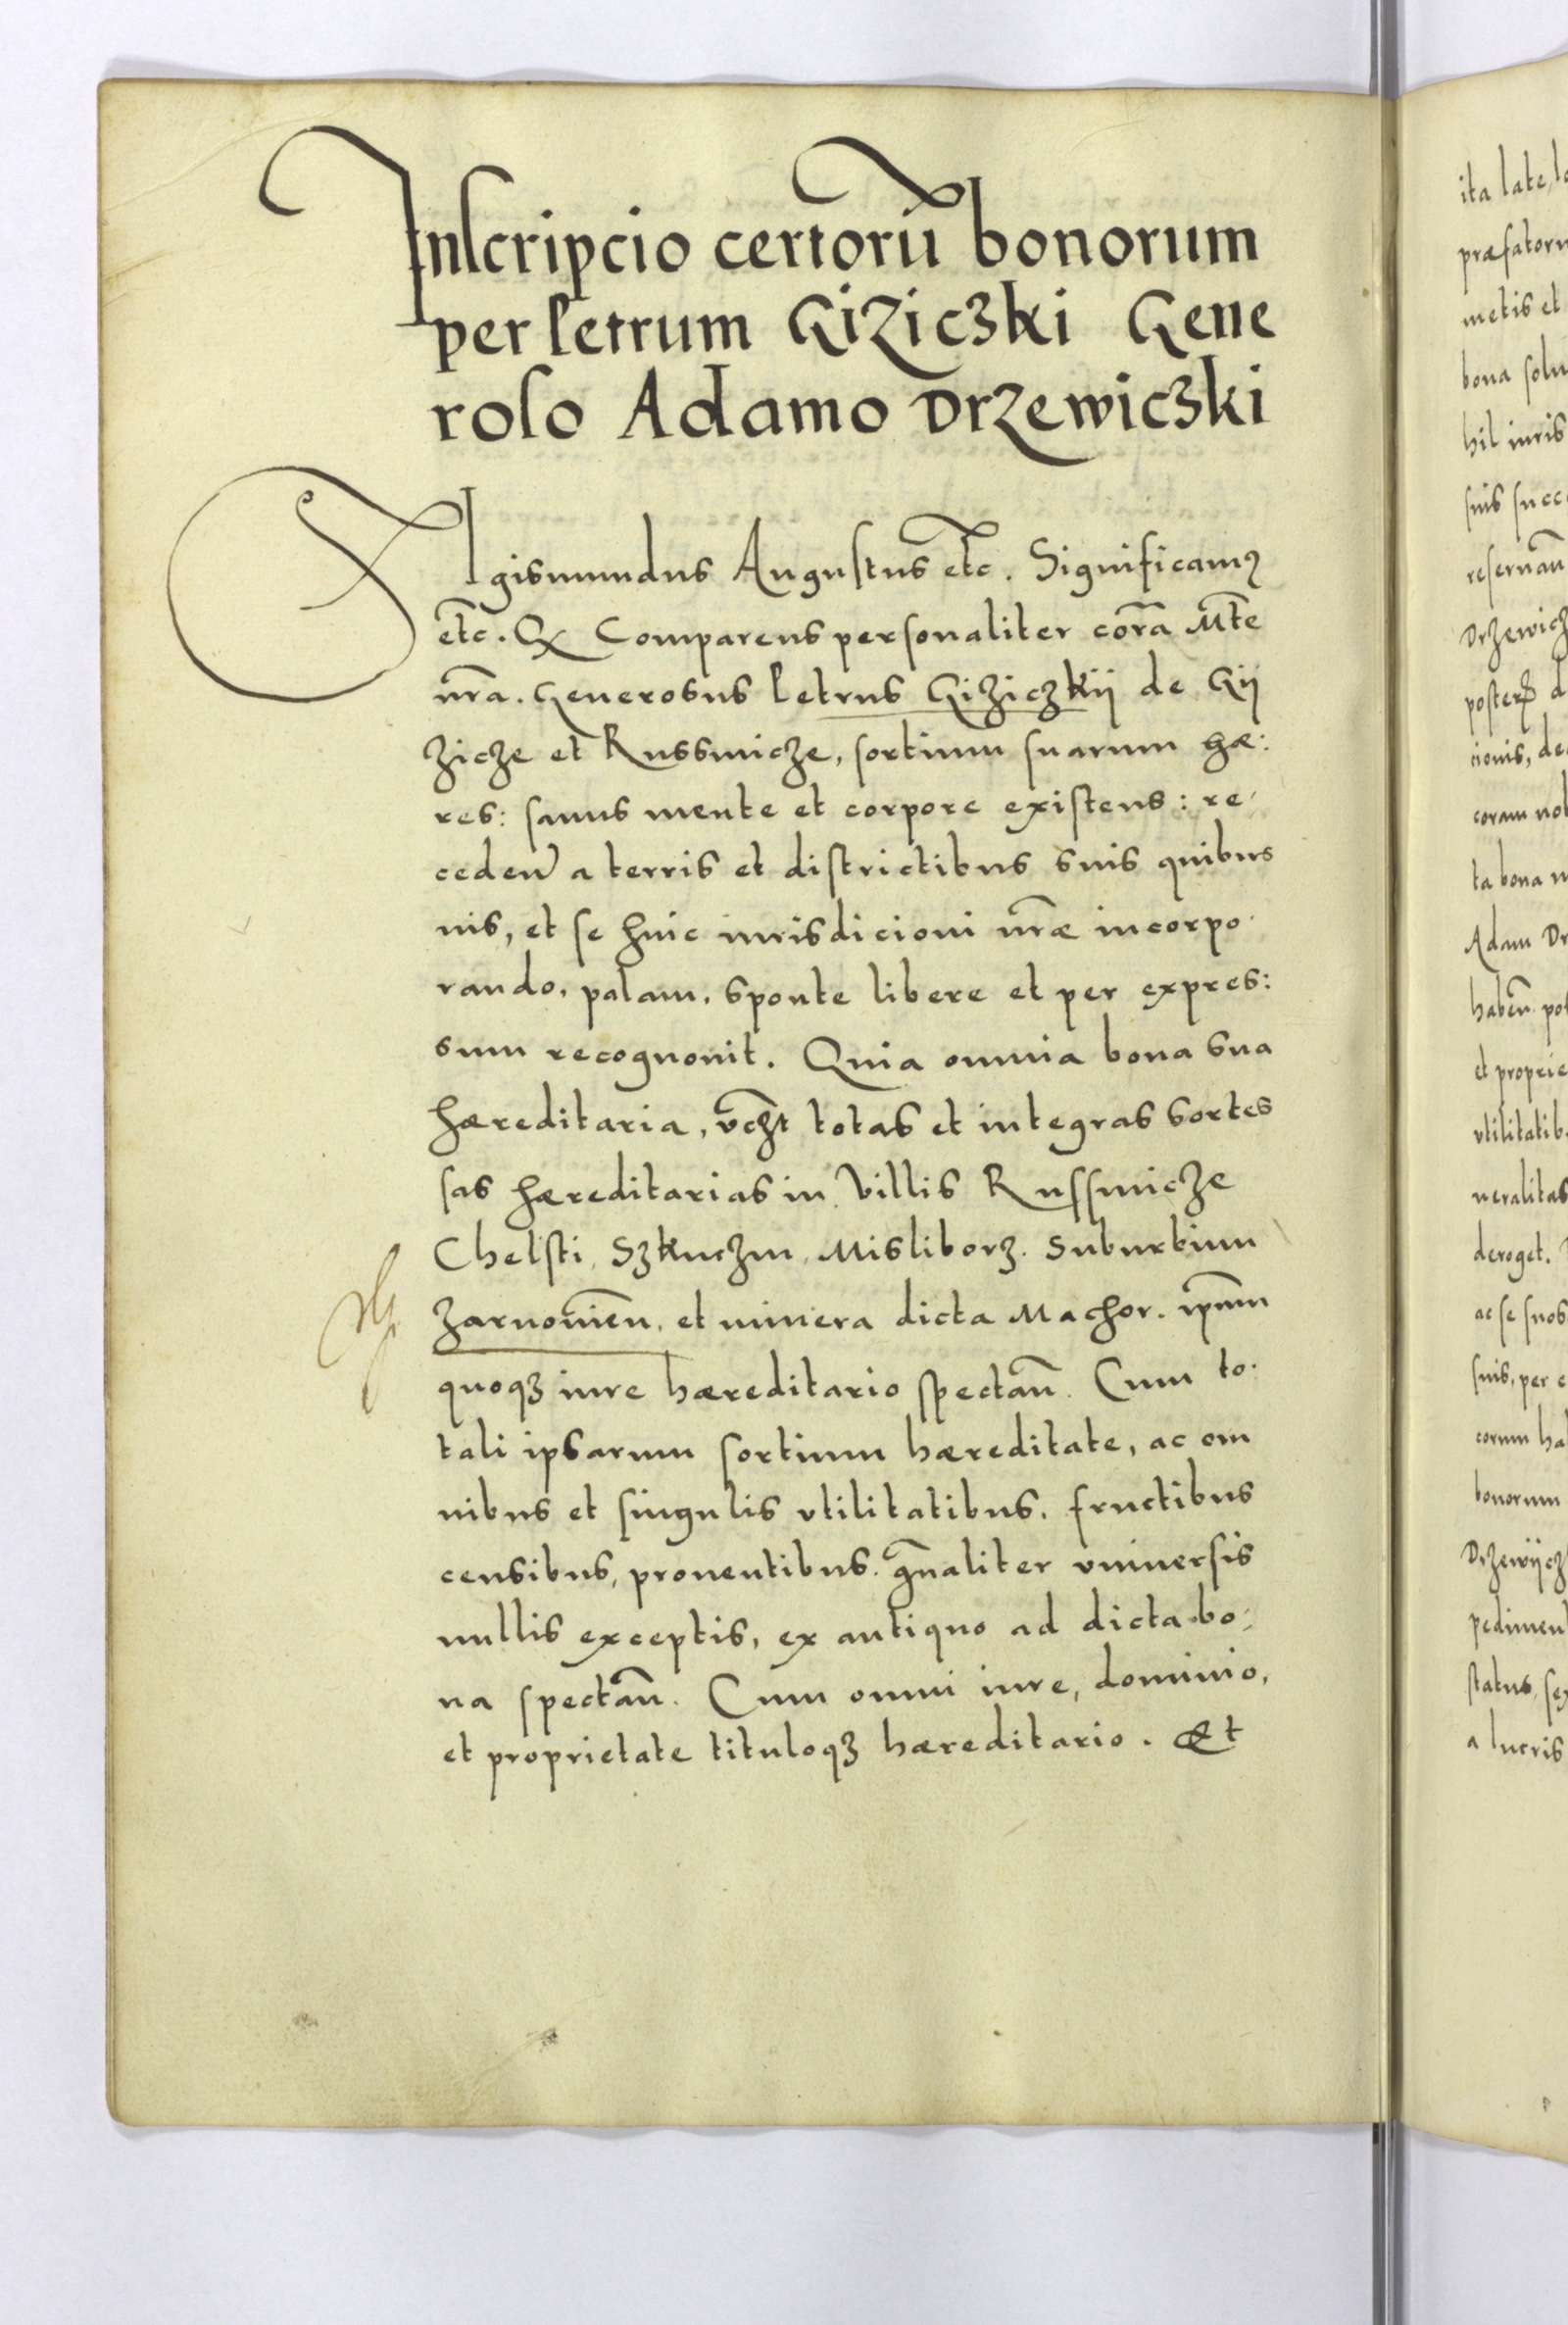 Inscripcio certorū bonorum
per Petrum Giziczki Gene
roso Adamo Drzewiczki
SIgismundus Augustus etc̃. Significamꝰ
etc̃. Qꝫ Comparens personaliter corã Mte̅
nr̃a. Generosus Petrus Giziczkij de Gij
zicze et Russinicze, sortium suarum hæ:
res: sanus mente et corpore existens: re-
ceden̄ a terris et districtibus suis quibus
uis, et se huic iurisdicioni nr̃æ incorpo-
rando, palam, sponte libere et per expres:
sum recognouit. Quia omnia bona sua
hæreditaria, vcz̃t totas et integras sortes
sas hæreditarias in Villis Russinicze
Chelsti, Szkuczin, Misliborz. Suburbium
Zarnouien̄, et minera dicta Machor. ip̄um
quoqꝫ iure hæreditario spectan̄. Cum to-
tali ipsarum sortium hæreditate, ac om
nibus et singulis vtilitatibus, fructibus
censibus, prouentibus. gn̄aliter vniuersis
nullis exceptis, ex antiquo ad dicta bo-
na spectan̄. Cum omni iure, dominio,
et proprietate tituloqꝫ hæreditario. Et
ita late, l
præfatoru
metis et
bona solu
hil iuris
suis succ
reseruan̄
Drzewicz
poster d
cionis, de
coram nob
ta bona
Adam Dr
haben̄ po
et proprie
vtilitatib
neralitas
deroget.
ac se suos
suis, per
eorum ha
bonorum
Drzewijcz
pedimen
status, se
a lucris